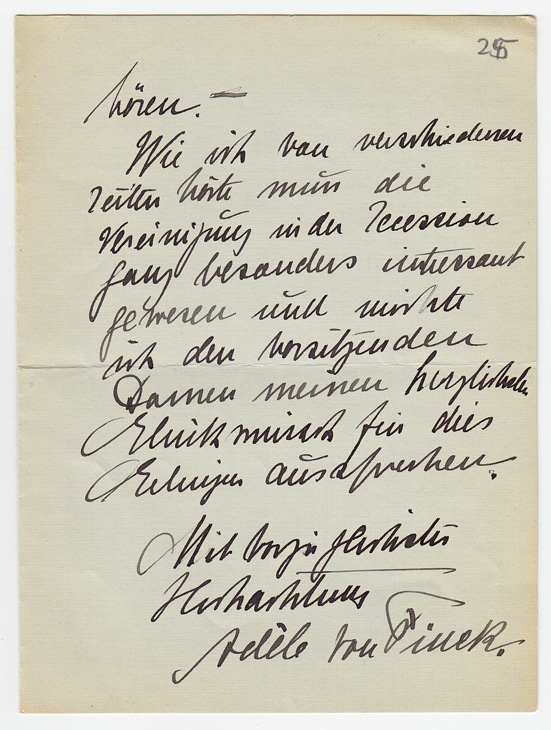 25
hören. —
Wie ich von verschiedenen
Seiten hörte muss die
Vereinigung in der Secession
ganz besonders interessant
gewesen und möchte
ich den vorsitzenden
Damen meinen herzlichsten
Glückwunsch für dies
Gelingen aussprechen.
Mit vorzüglichster
Hochachtung
Adèle von Finck.